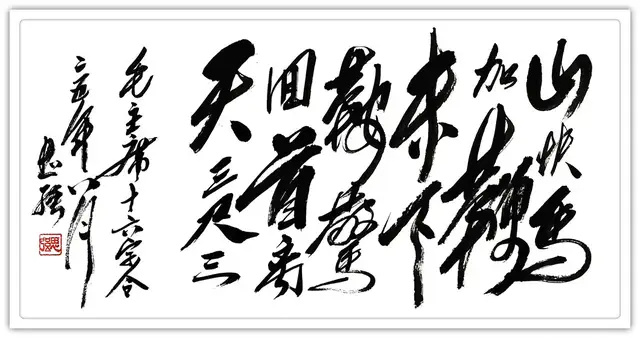 山快馬
加鞭
未下
鞍驚
回首离
天三尺三
毛主席十六字令
二五年八月